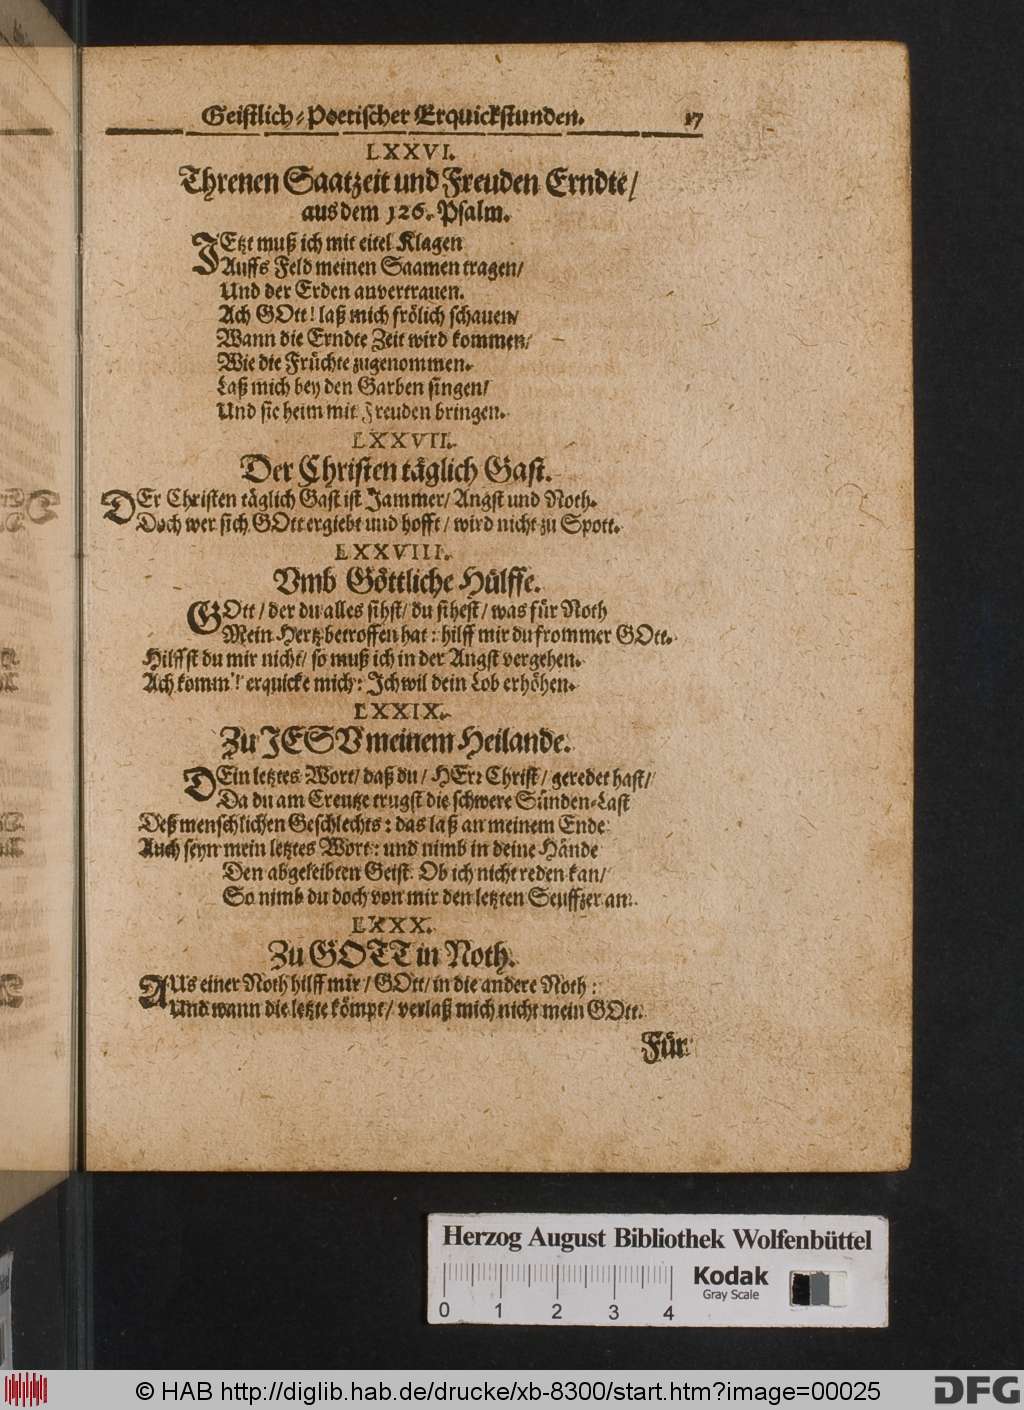 Geistlich-Poetischer Erquickstunden. 17
LXXVI.
Threnen Saatzeit und Freuden Erndte/
aus dem 126. Psalm.
JEtzt muß ich mit eitel Klagen
Auffs Feld meinen Saamen tragen/
Und der Erden anvertrauen.
Ach GOtt! laß mich frölich schauen/
Wann die Erndte Zeit wird kommen/
Wie die Früchte zugenommen.
Laß mich bey den Garben singen/
Und sie heim mit Freuden bringen.
LXXVII.
Der Christen täglich Gast.
DEr Christen täglich Gast ist Jammer/ Angst und Noth.
Doch wer sich GOtt ergiebt und hofft/ wird nicht zu Spott.
LXXVIII.
Vmb Göttliche Hülffe.
GOtt/ der du alles sihst/ du sihest/ was für Noth
Mein Hertz betroffen hat: hilff mir du frommer GOtt.
Hilffst du mir nicht/ so muß ich in der Angst vergehen.
Ach komm! erquicke mich: Ich wil dein Lob erhöhen.
LXXIX.
Zu JESV meinem Heilande.
DEin letztes Wort/ daß du/ HErr Christ/ geredet hast/
Da du am Creutze trugst die schwere Sünden-Last
Deß menschlichen Geschlechts: das laß an meinem Ende
Auch seyn mein letztes Wort: und nimb in deine Hände
Den abgeleibten Geist. Ob ich nicht reden kan/
So nimb du doch von mir den letzten Seuffzer an.
LXXX.
Zu GOTT in Noth.
AUs einer Noth hilff mir/ GOtt/ in die andere Noth:
Und wann die letzte kömpt/ verlaß mich nicht mein GOtt.
Für
Herzog August Bibliothek Wolfenbüttel
Kodak
Gray Scale
0 1 2 3 4
© HAB http://diglib.hab.de/drucke/xb-8300/start.htm?image=00025
DFG